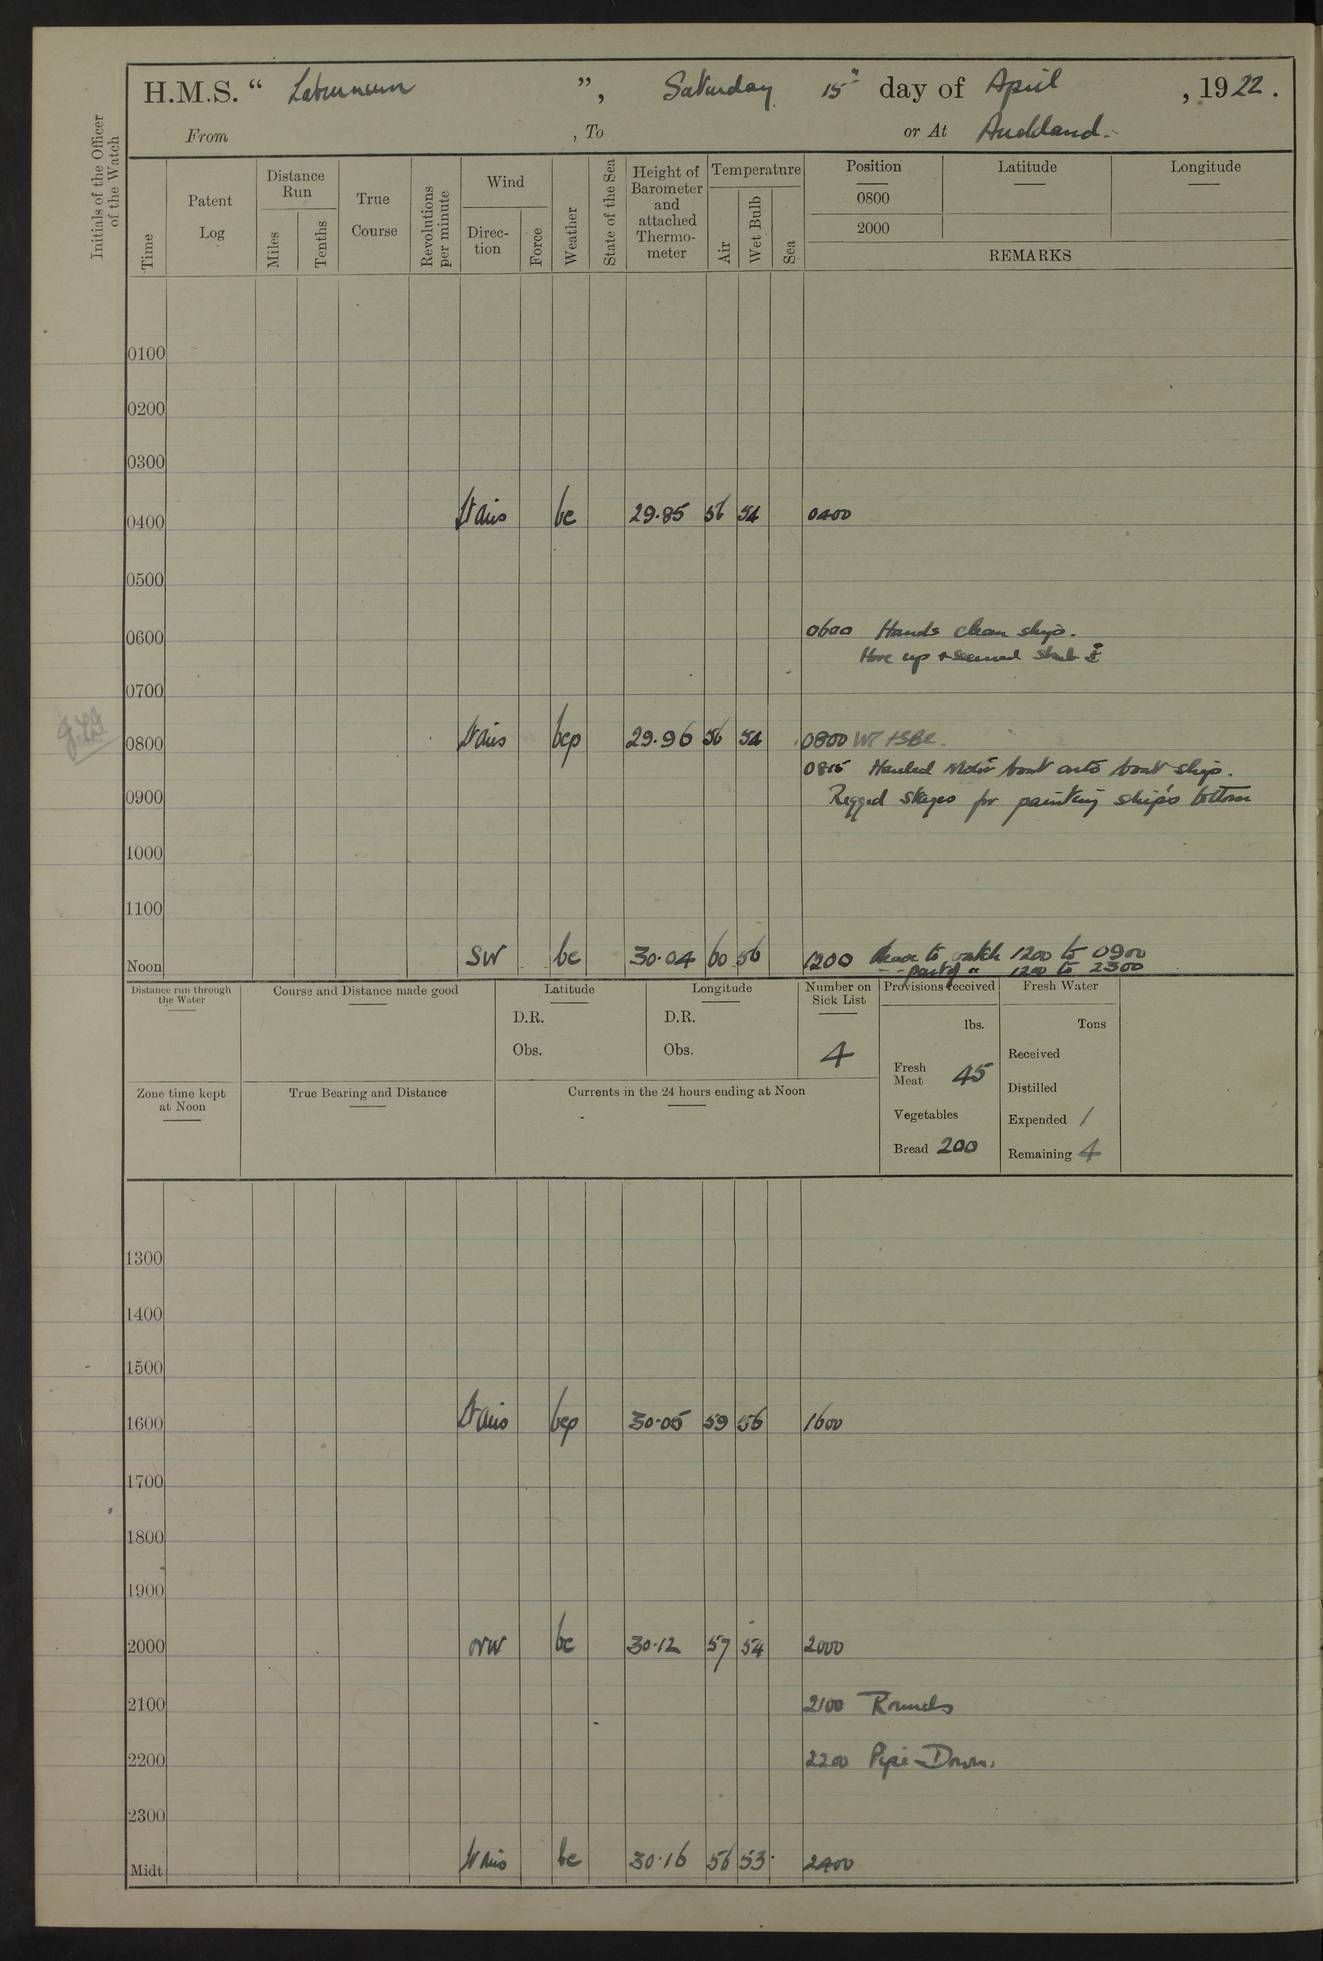 H.M.S. “ Laburnum ”, Saturday 15th day of April , 1922.
From , To or At Auckland.
Initials of the Officer of the Watch
Time
Patent Log
Distance Run
Miles
Tenths
True Course
Revolutions per minute
Wind
Direc-tion
Force
Weather
State of the Sea
Height of Barometer and attached Thermo-meter
Temperature
Air
Wet Bulb
Sea
Position
Latitude
Longitude
0800
2000
REMARKS
0100
0200
0300
0400 bc 29.85 56 54 0400
0500
0600 0600 Hands clean ship.
Hove up &
0700
0800 bcp 29.96 56 54 0800
0815 Hauled Motor boat onto boat slip.
0900 Rigged stages for painting ship's bottom
1000
1100
Noon SW bc 30.04 60 56 1200 Leave to watch 1200 to 0900
-- part of " 1200 to 2300
Distance run through the Water
Course and Distance made good
Latitude
D.R.
Obs.
Longitude
D.R.
Obs.
Number on Sick List
4
Provisions received
lbs.
Fresh Meat 45
Vegetables
Bread 200
Fresh Water
Tons
Received
Distilled
Expended 1
Remaining 4
Zone time kept at Noon
True Bearing and Distance
Currents in the 24 hours ending at Noon
1300
1400
1500
1600 bcp 30.05 59 56 1600
1700
1800
1900
2000 bc 30.12 57 54 2000
2100 2100 Rounds
2200 2200 Pipe Down.
2300
Midt bc 30.16 56 53 2400